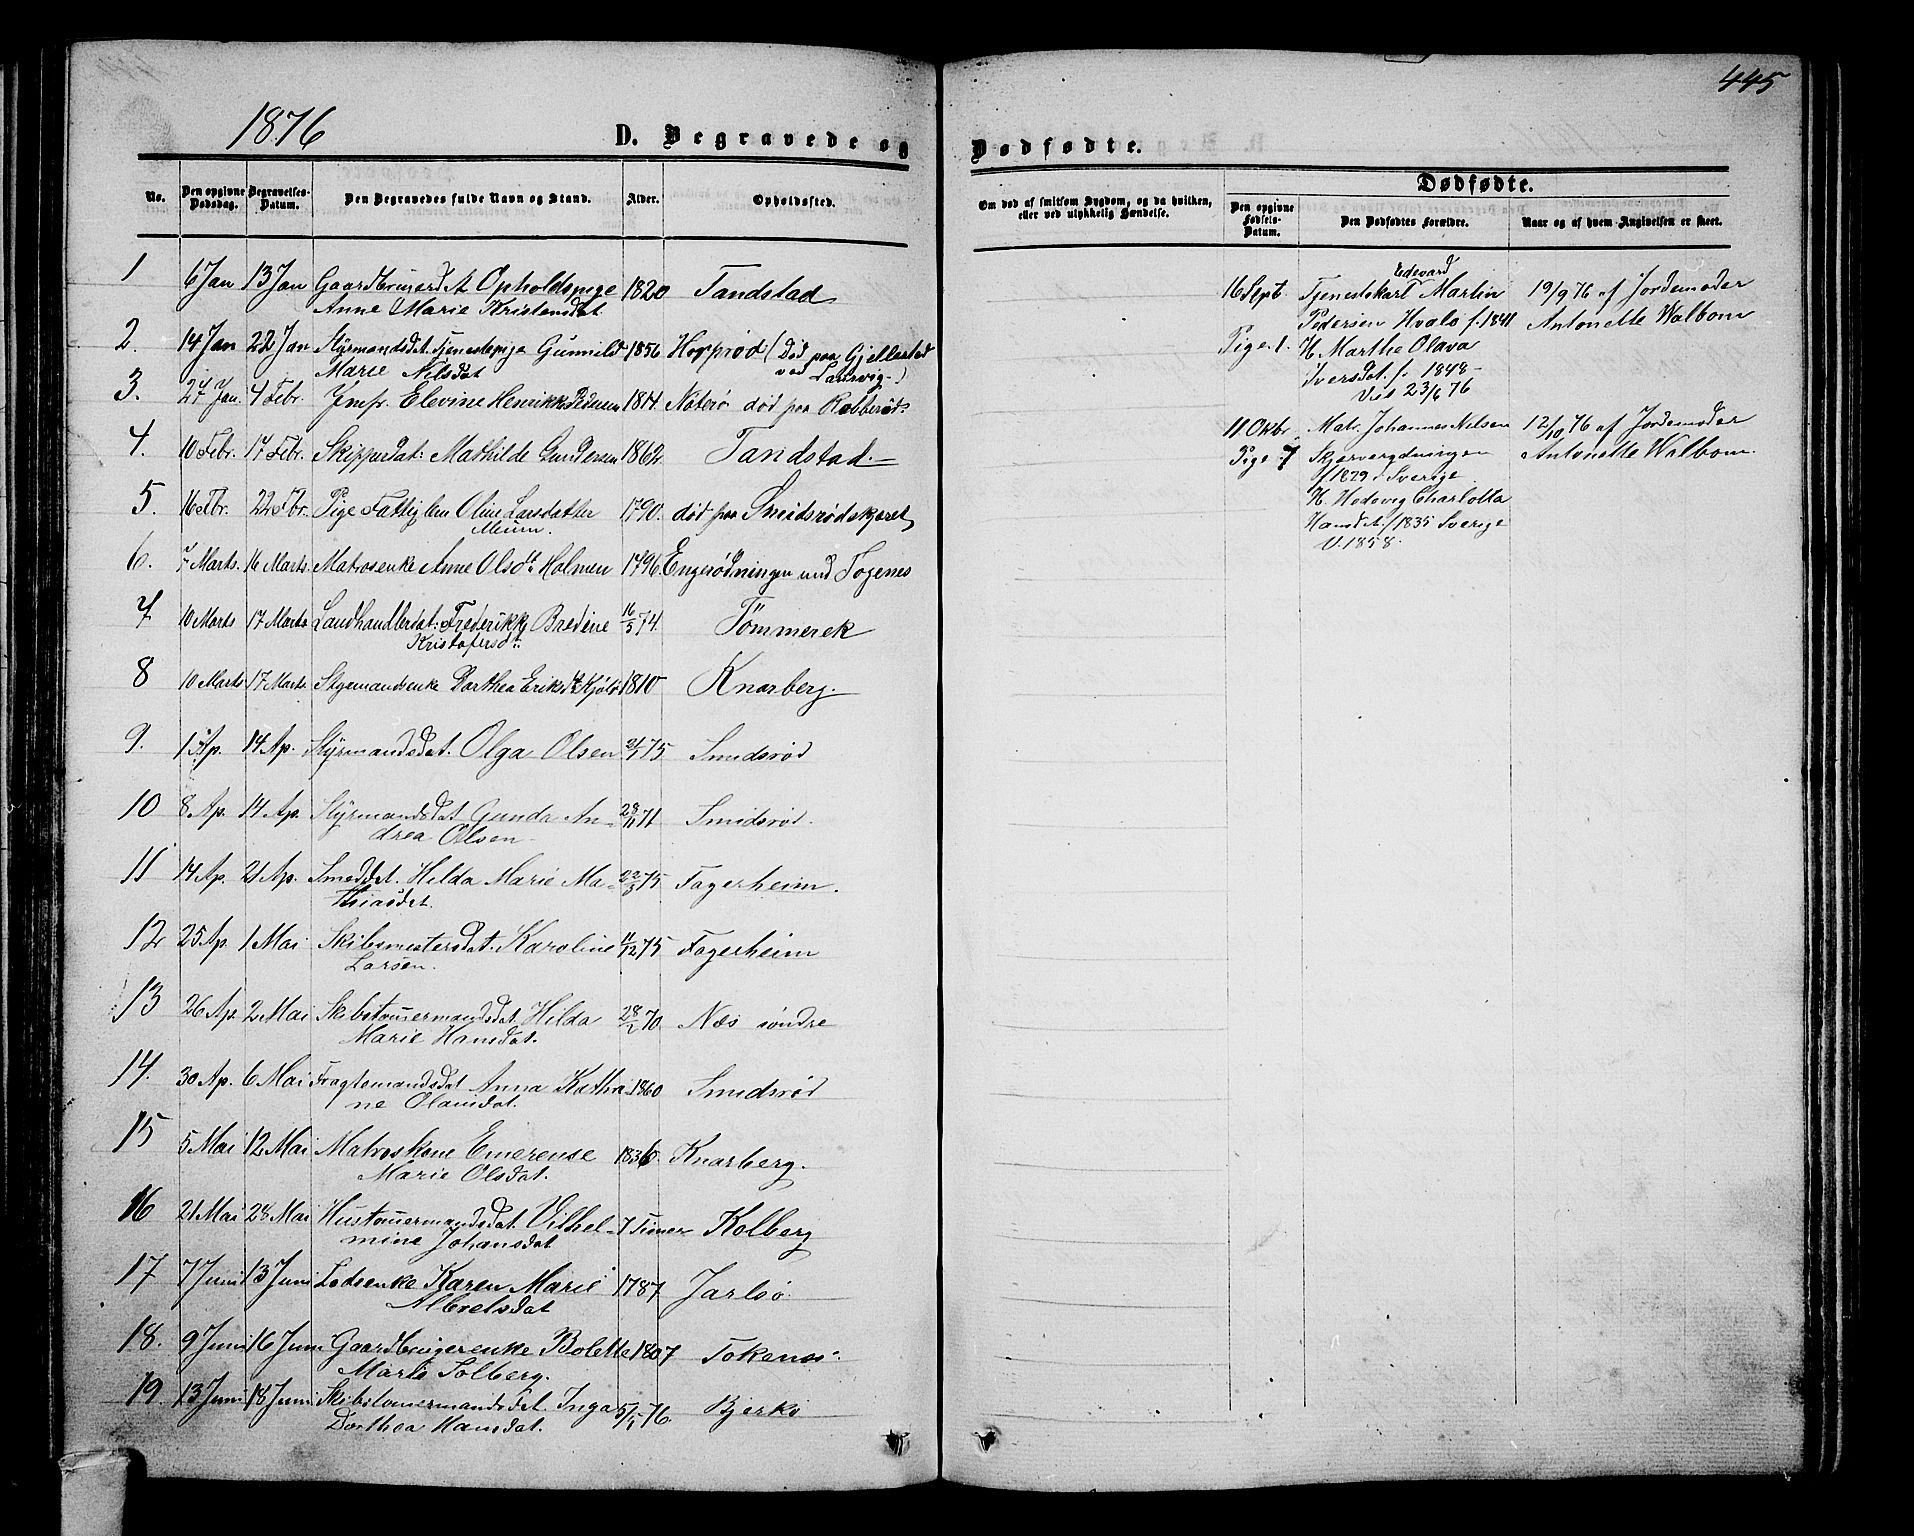 445
1876
D. Begravede og
Dødfødte.
No.
Den opgivne Dødsdag.
Begravelses-Datum.
Den Begravedes fulde Navn og Stand.
Alder.
Opholdssted.
Om død af smitsom Sygdom, og da hvilken, eller ved ulykkelig Hændelse.
Dødfødte.
Den opgivne Fødsels-Datum.
Den Dødfødtes Forældre.
Naar og af hvem Angivelsen er skeet.
1 6 Jan 13 Jan Opholdspige 1820 Tandstad
Anne Marie Kristensdat.
2. 14 Jan 22 Jan Styrmandsdat. Tjenestepige Gunnild 1856 (Død paa Gjellestad
Marie Nilsdat ved Laurvig-)
3. Jan. 4 Febr. Jmfr. Elevine Pedersen 1814. Nøterø død paa
4. 10 Febr. 17 Febr. Skipperdat: Mathilde Gundersen 1862. Tandstad.
5. 16 Fbr. 22 Fbr. Pige Fattiglem Oline Larsdatter 1790. død paa Smidsrødskjæret
6. 7 Marts. 16 Marts. Matrosenke Anne Olsdt. Holmen 1796.
7 10 Marts 17 Marts Landhandlerdat: Frederikke Bredine 16/5 74. Tömmerek
Kristofersdt.
8 10 Marts 17 Marts. Styrmandsenke Dorthea Eriksdt. 1810 Knarberg.
9. Ap. 14 Ap. Styrmandsdat. Olga Olsen 75 Smidsrød
10 8 Ap. 14 Ap. Styrmandsdat Gunda An-
drea Olsen 28/11 71 Smidsrød.
11 14 Ap. 21 Ap. Smeddat. Hilda Marie Ma- 75 Fagerheim.
thiasdet.
12 25 Ap. 1 Mai Skibsmestersdat. Karoline 11/12 75 Fagerheim
Larsen.
13 26 Ap. 2 Mai Skibstømermandsdat. Hilda 70. Næs söndre
Marie Hansdat.
14. 30 Ap. 6 Mai Fragtemandsdat Anna Kathri- 1860 Smidsrød
ne Olausdat.
15 5 Mai 12 Mai Matroskone Emerense 1836 Knarberg.
Marie Olsdat.
16 21 Mai 28 Mai Hustømermandsdat Vilhel- 7 Timer Kolberg
mine Johansdat
17 7 Juni 13 Juni Lodsenke Karen Marie 1787 Jarlsø.
Albretsdat
18. 9 Juni 16 Juni Gaardbrugerenke Bolette 1807 Tokenes.
Marie Solberg.
19. 13 Juni 18 Juni Skibstømermandsdat. Inga 76. Bjerkø
Dorthea Hansdat.
16 Sept Tjenestekarl Edevard Martin 19/9 76 af Jordemoder
Pedersen Hvalø f. 1841 Antonette Walbom
Pige. 1. H. Marthe Olava
Iversdat. f. 1848-
Vis 23/6 76
11 Oktbr. Matr. Johannes Nilsen 12/10 76 af Jordemoder
Pige 7 Antonette Walbom.
f 1829 i Sverige
H. Hedevig Charlotta
Hansdat. f 1835 Sverige
V. 1858.